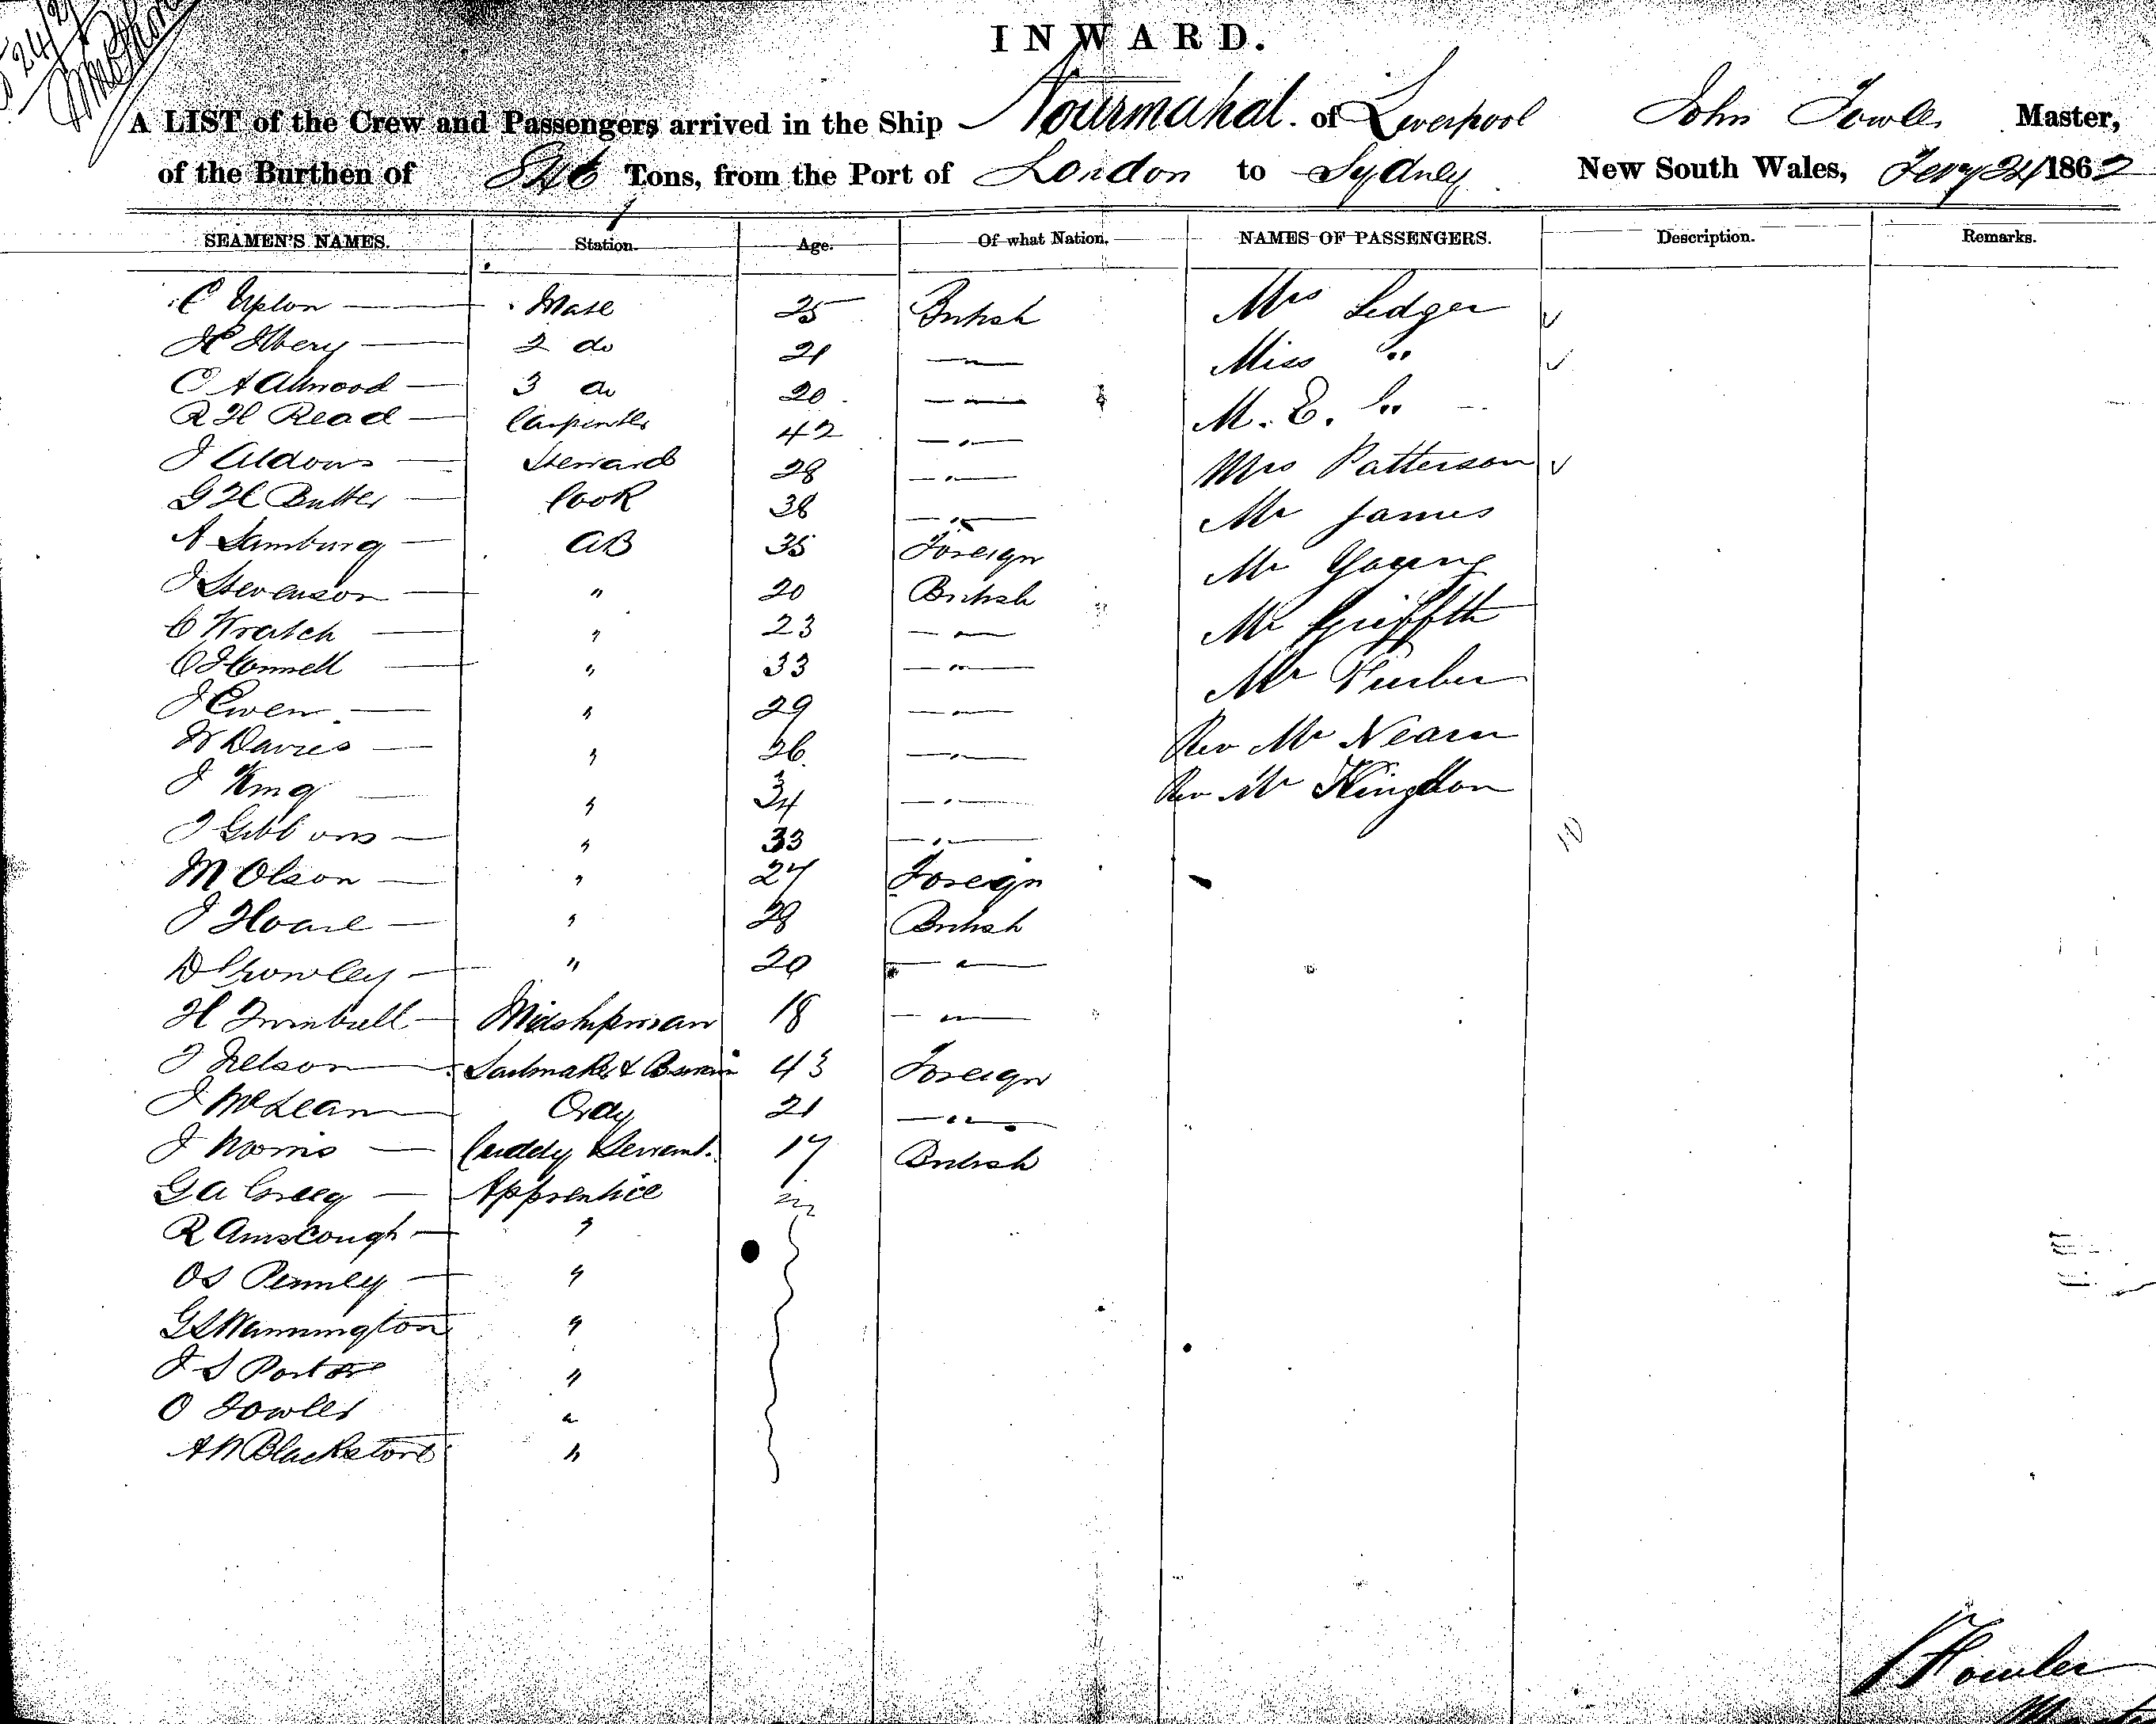 INWARD.
A LIST of the Crew and Passengers arrived in the Ship Nourmahal of Liverpool John Fowler Master,
of the Burthen of 846 Tons, from the Port of London to Sydney New South Wales, Feby 24 1862
SEAMEN'S NAMES. Station. Age. Of what Nation. NAMES OF PASSENGERS. Description. Remarks.
C Upton Mate 25 British Mrs Ledger
H Ilbery 2 do 21 — " — Miss "
C A Attwood 3 do 20 — " — M. E. "
R H Read Carpenter 42 — " — Mrs Patterson
J Steward 28 — " — Mr James
G H Butler Cook 38 — " — Mr Young
A Lamburg AB 35 Foreign Mr Griffith
J Stevenson " 20 British Mr Furber
C Wratch " 23 — " — Rev Mr Nearn
O'Connell " 33 — " — Rev Mr Kingdon
J Ewen " 29 — " —
W Davies " 26 — " —
J King " 34 — " —
J Gibbons " 33 — " —
M Olson " 27 Foreign
J Hoare " 28 British
D Crowley " 20 — " —
H Midshipman 18 — " —
J Nelson Sailmaker & 43 Foreign
J McLean Ordy 21 — " —
J Morris Cuddy Servant 17 British
G A Greeg Apprentice
R Ainscough "
O S Penney "
G S Wannington "
J S Porter "
O Fowler "
A W Blackstone "
J Fowler